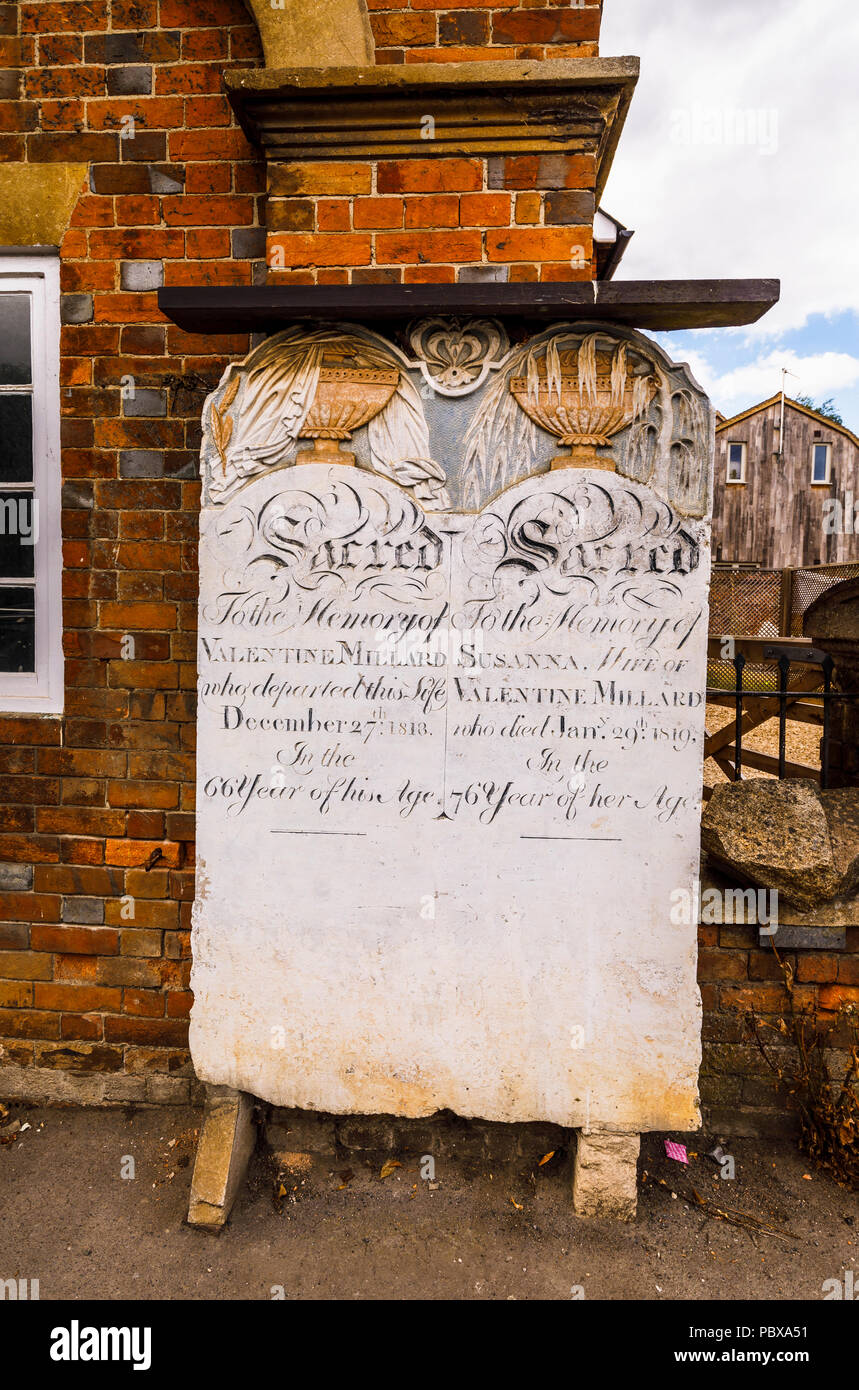 Sacred
To the Memory of
VALENTINE MILLARD
who departed this Life
December 27th. 1818.
In the
66 Year of his Age.
Sacred
To the Memory of
SUSANNA, WIFE OF
VALENTINE MILLARD
who died Jany. 29th. 1819,
In the
76 Year of her Age.
alamy
Image ID: PBXA51
www.alamy.com